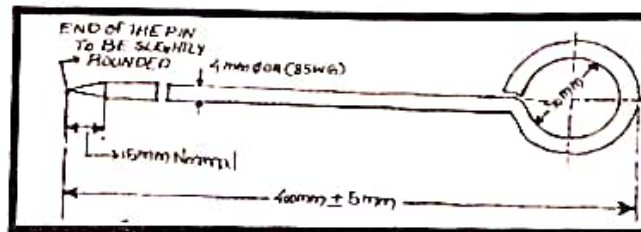 END OF THE PIN
TO BE SLIGHTLY
ROUNDED
4mm ϕ OR (8SWG)
15mm Normal
400mm ± 5mm